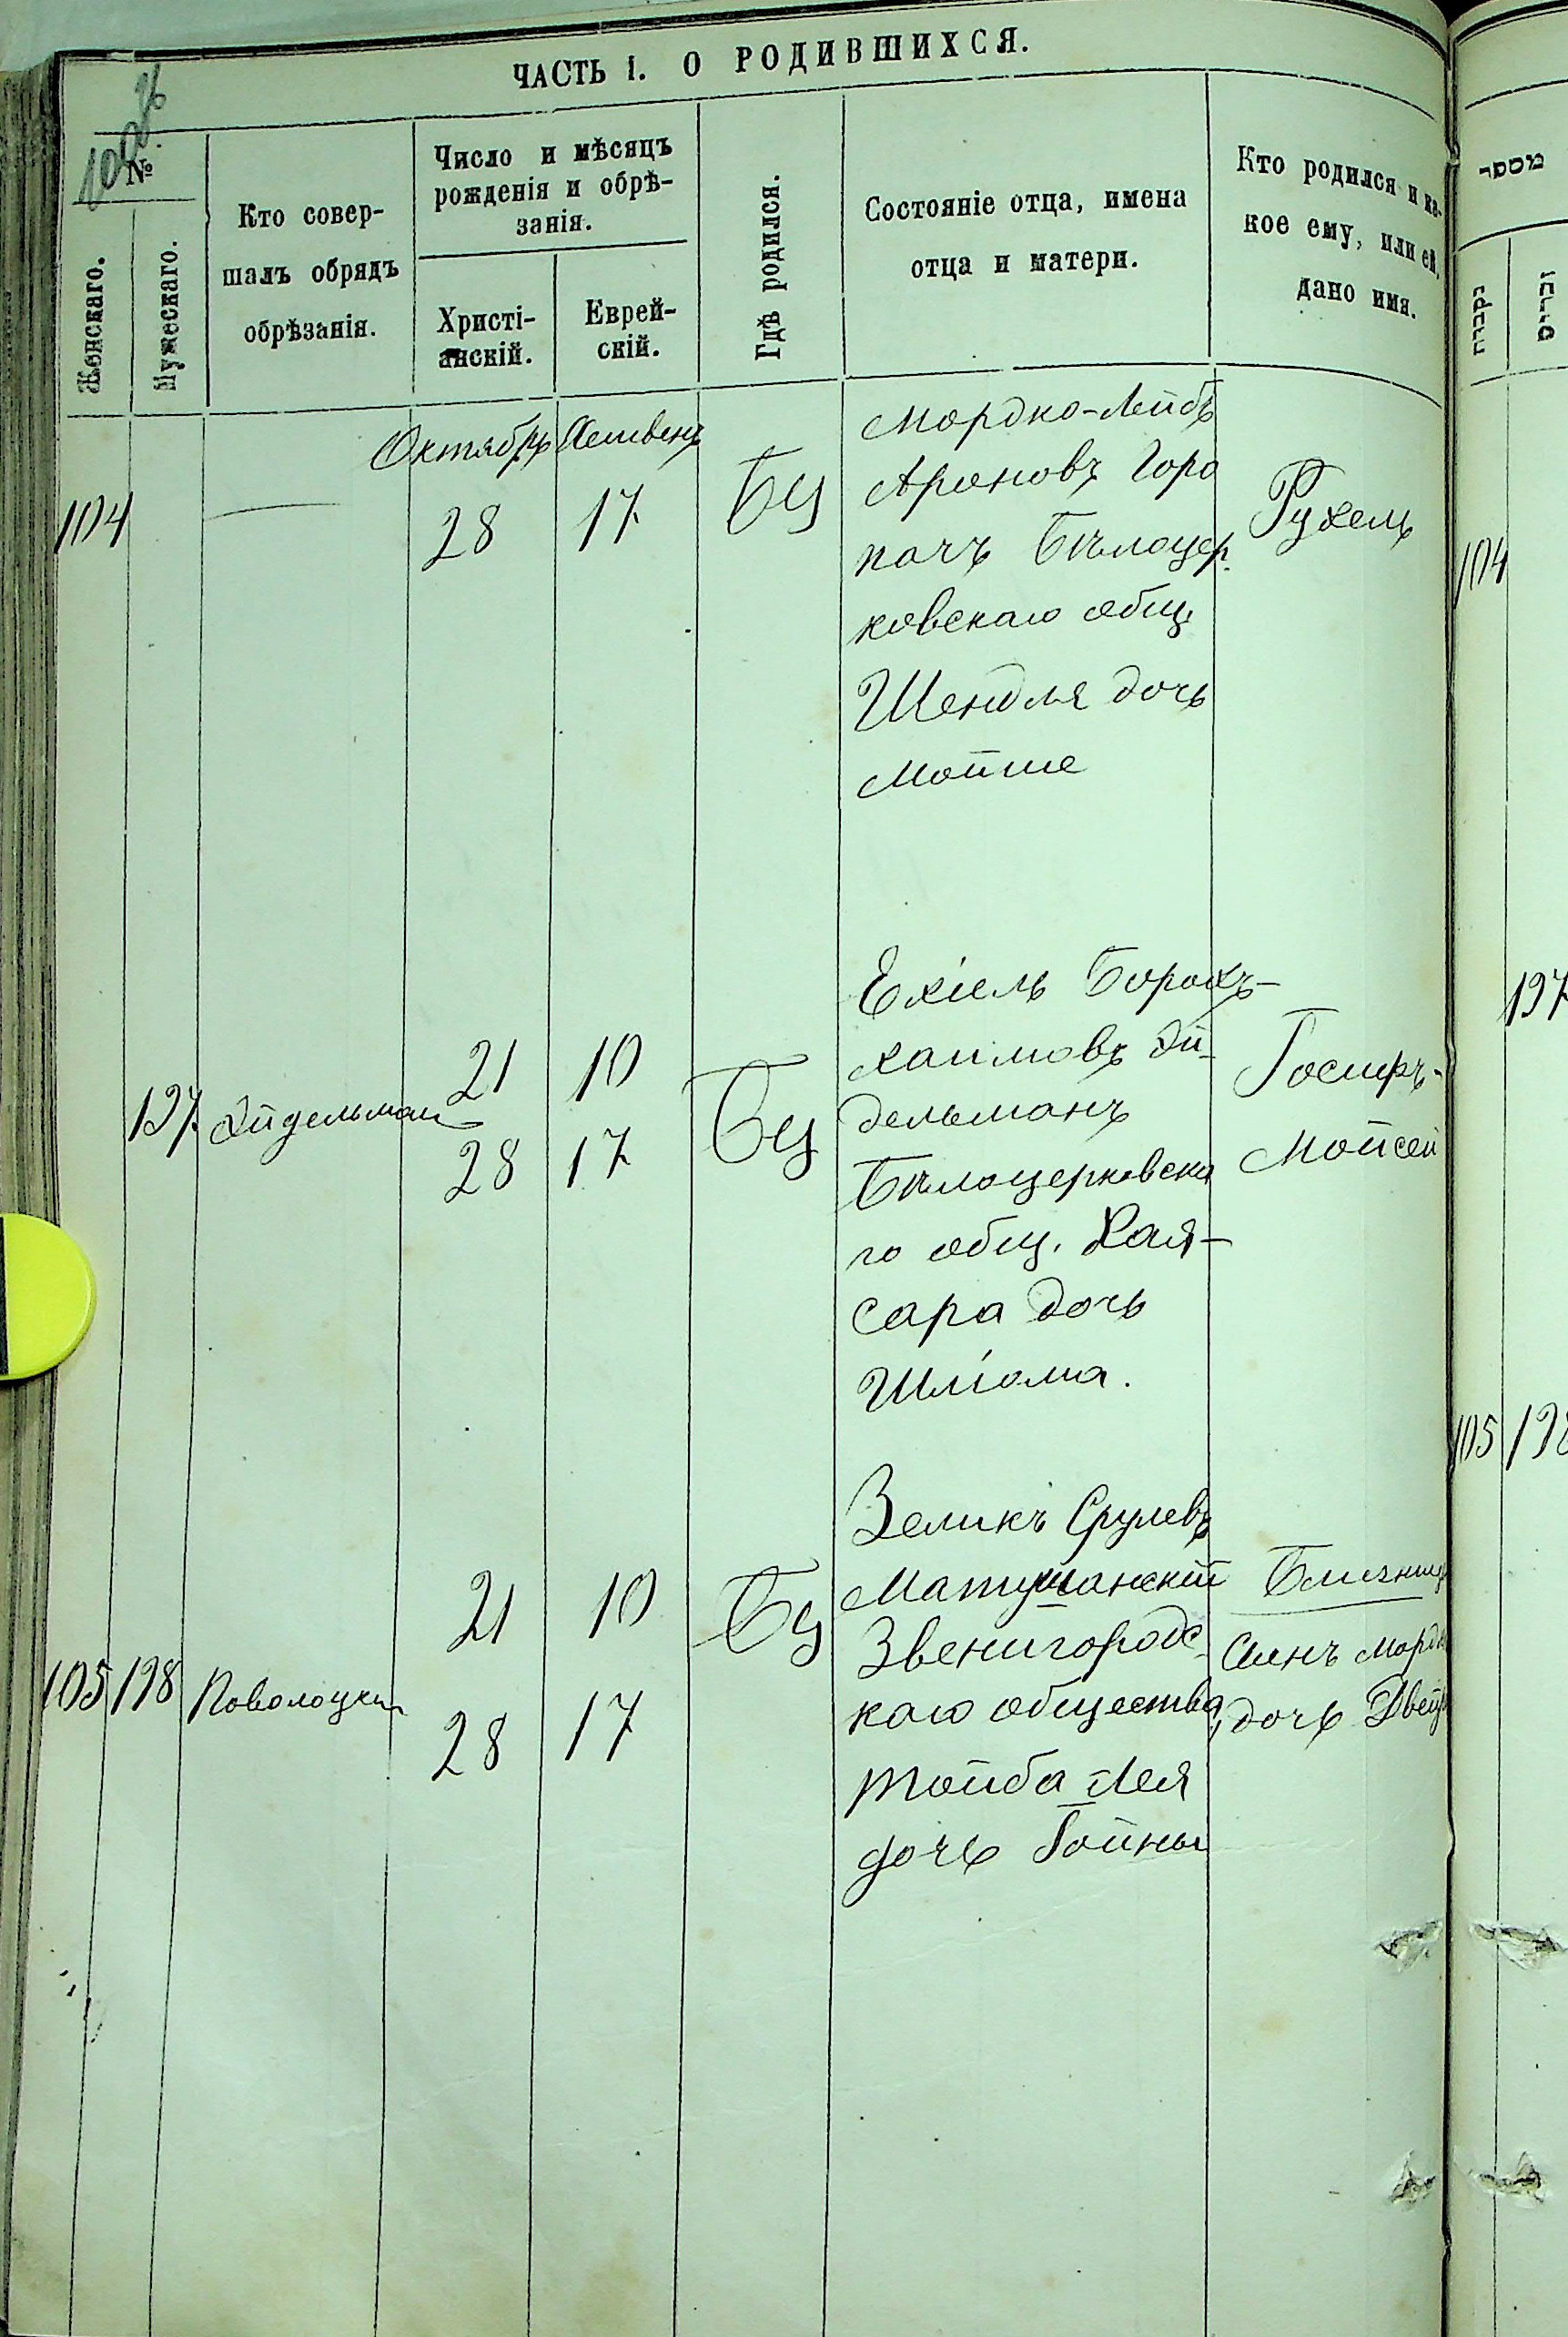 ЧАСТЬ I. О РОДИВШИХСЯ.
№
Женскаго.
Мужескаго.
Кто совер-
шалъ обрядъ
обрѣзанія.
Число и мѣсяцъ
рожденія и обрѣ-
занія.
Христі-
анскій.
Еврей-
скій.
Гдѣ родился.
Состояніе отца, имена
отца и матери.
Кто родился и ка-
кое ему, или ей,
дано имя.
Октябрь Хешвенъ
104
28 17
Бц
Мордко-Лейбъ
Ароновъ Горо
Бѣлоцер.
ковскаго общ.
Шендля дочь
Мойше
Рухель
197 Эйдельман
21 10
28 17
Бц
Ехіель Борохъ-
Хаимовъ Эй-
дельманъ
Бѣлоцерковска
го общ. Хая-
Сара дочь
Шліома.
Іосифъ-
Мойсей
105 198 Поволоцкий
21 10
28 17
Бц
Зеликъ Срулевъ
Звенигородс-
каго общества,
Тойба Лея
дочь
Близнецы
Сынъ Мордк
дочь Двей
מספר
נקבות
זכרים
104
197
105 198